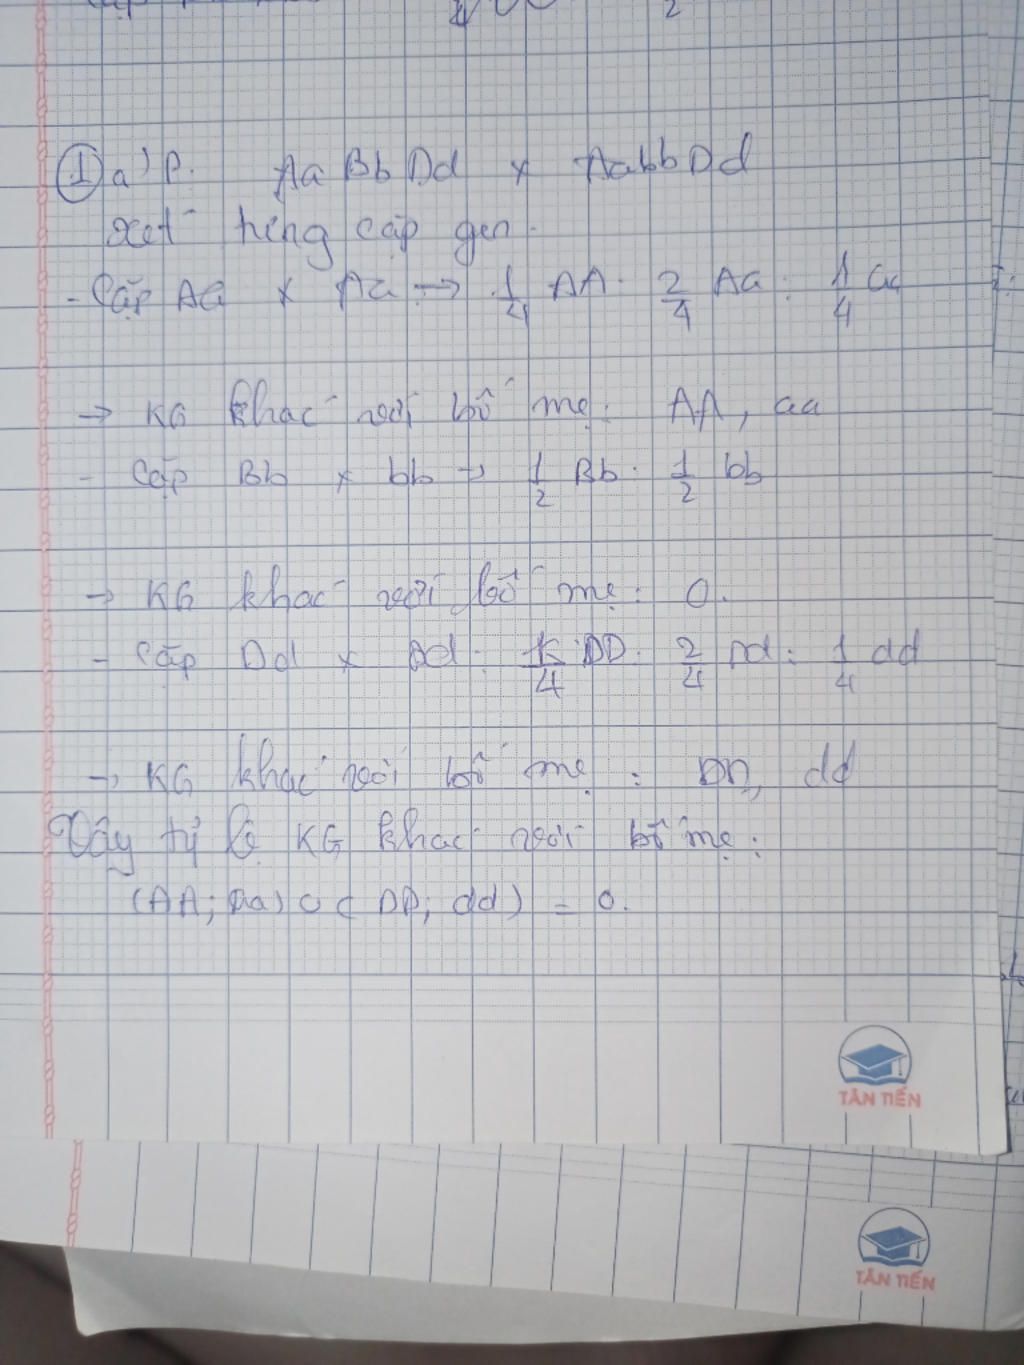 ① a) P. AaBbDd x AabbDd
Xét từng cặp gen.
- Cặp Aa x Aa → 1/4 AA : 2/4 Aa : 1/4 aa
→ KG khác với bố mẹ: AA, aa
- Cặp Bb x bb → 1/2 Bb : 1/2 bb
→ KG khác với bố mẹ: 0.
- Cặp Dd x Dd: 1/4 DD : 2/4 Dd : 1/4 dd
→ KG khác với bố mẹ : DD, dd
Vậy tỷ lệ KG khác với bố mẹ:
(AA; aa) ( DD; dd) = 0.
TÂN TIẾN
TÂN TIẾN